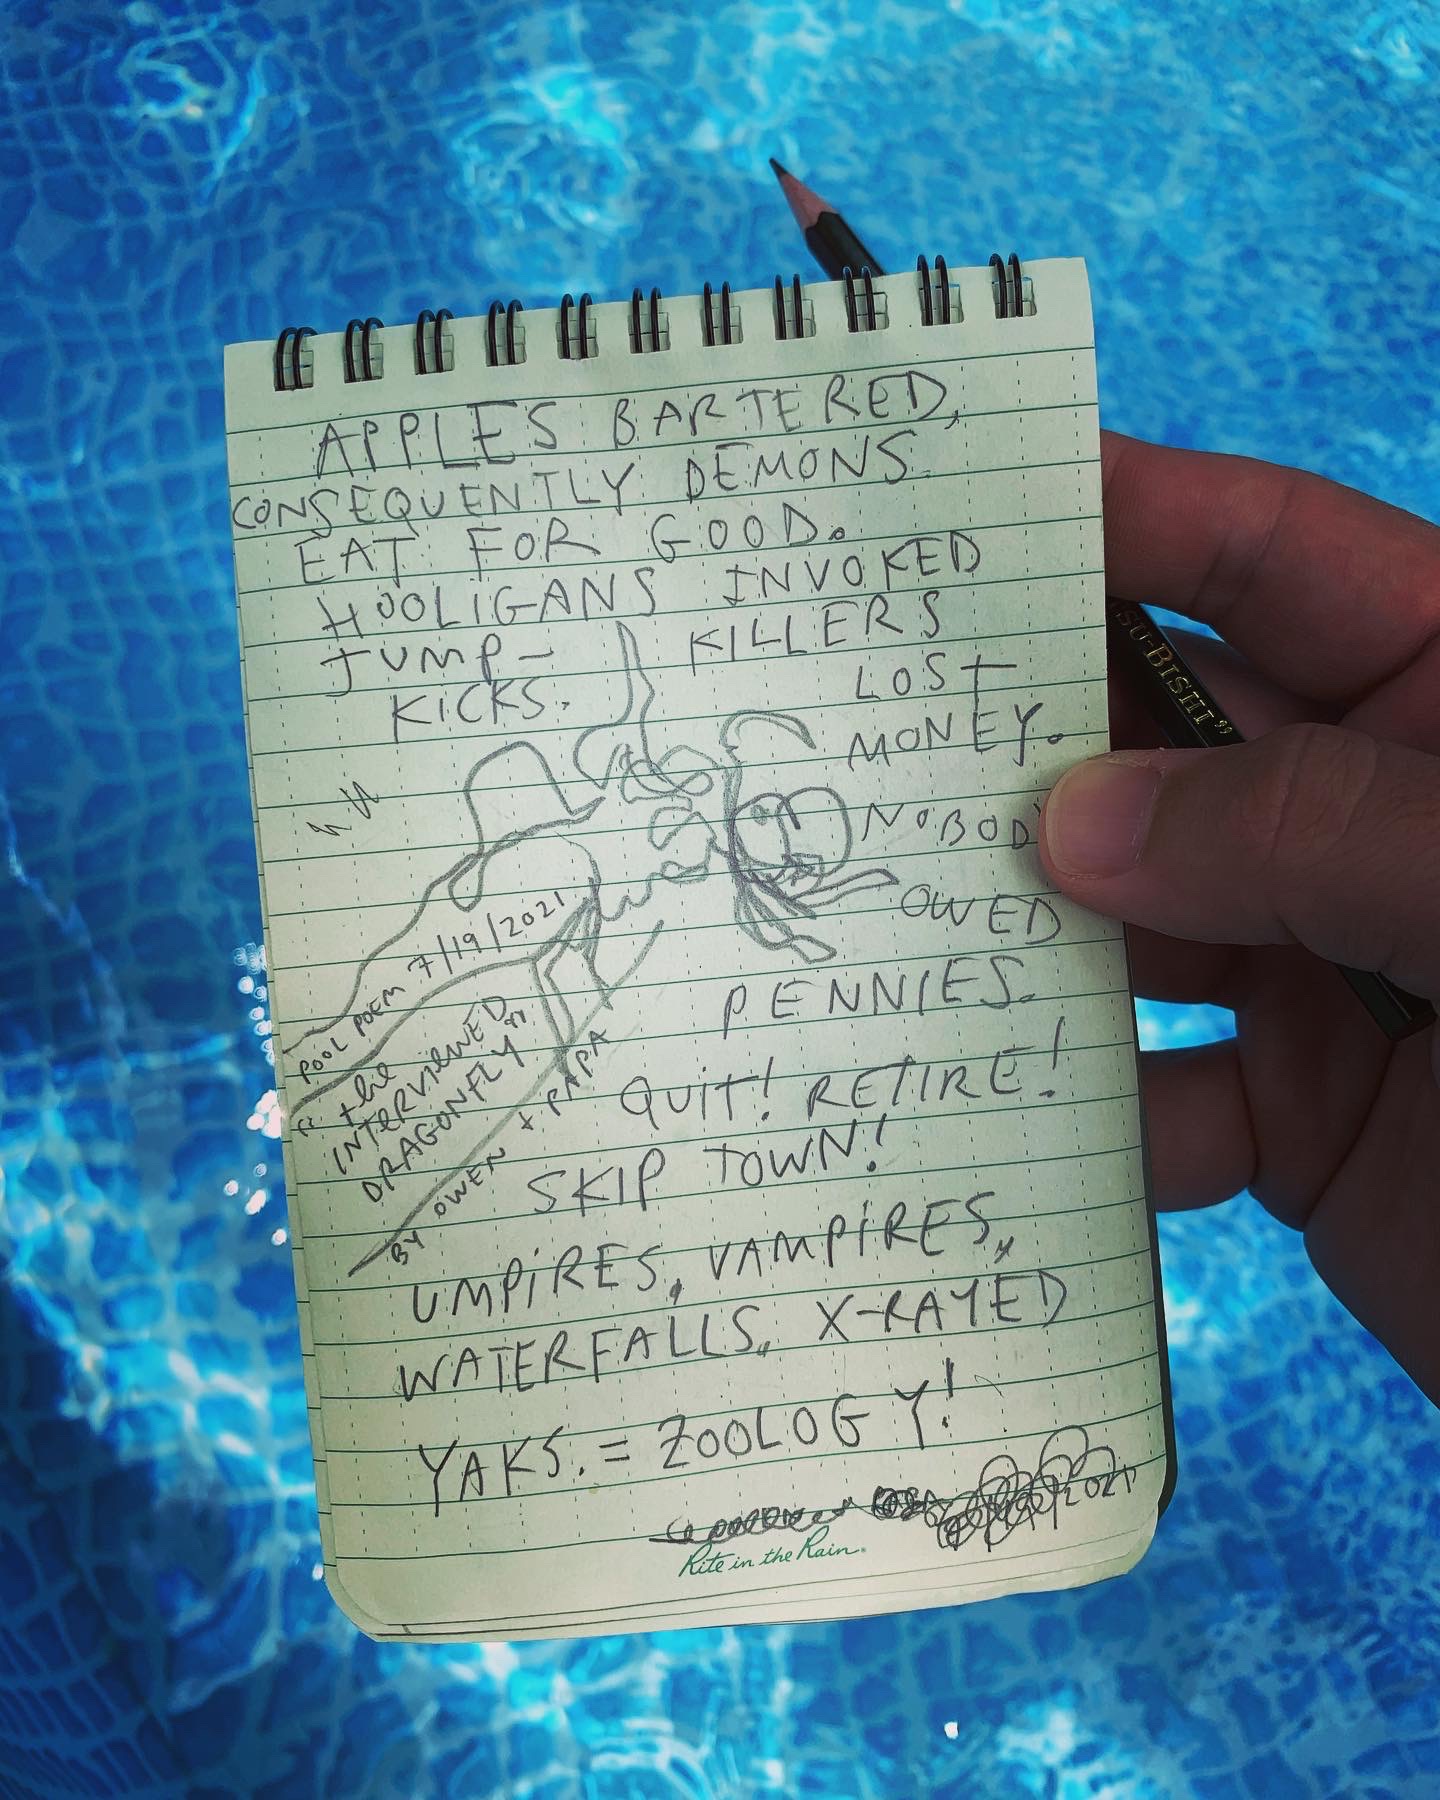 APPLES BARTERED,
CONSEQUENTLY DEMONS
EAT FOR GOOD.
HOOLIGANS INVOKED
JUMP-
KICKS.
KILLERS
LOST
MONEY.
NOBOD
OWED
PENNIES.
QUIT! RETIRE!
SKIP TOWN!
UMPIRES, VAMPIRES,
WATERFALLS, X-RAYED
YAKS. = ZOOLOGY!
POOL POEM 7/19/2021
the
INTERVIEWED
DRAGONFLY"
BY OWEN + PAPA
2021
Rite in the Rain
SU-BISHI"